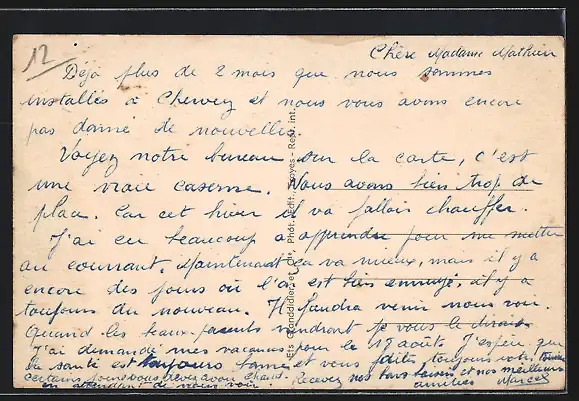 12
Chère Madame Mathieu
Déjà plus de 2 mois que nous sommes
installés à et nous vous avons encore
pas donné de nouvelles.
Voyez notre bureau sur la carte, c'est
une vraie caserne. Nous avons bien trop de
place. Car cet hiver il va falloir chauffer.
J'ai eu beaucoup a apprendre pour me mettre
au courrant. Maintenant ça va mieux, mais il y a
encore des jours où l'on est bien ennuyé, il y a
toujours du nouveau. Il faudra venir nous voir
Quand les beaux-parents viendront je vous le dirais.
J'ai demandé mes vacances pour le 18 août J'espère que
la santé est toujours bonne et vous
certains jours vous devez avoir chaud. Recevez nos bons baisers et nos meilleurs
en attendant de nous voir. amitiés Marcel
Ets Granddidier et Cie, Phot. Edit., - Repr. int.